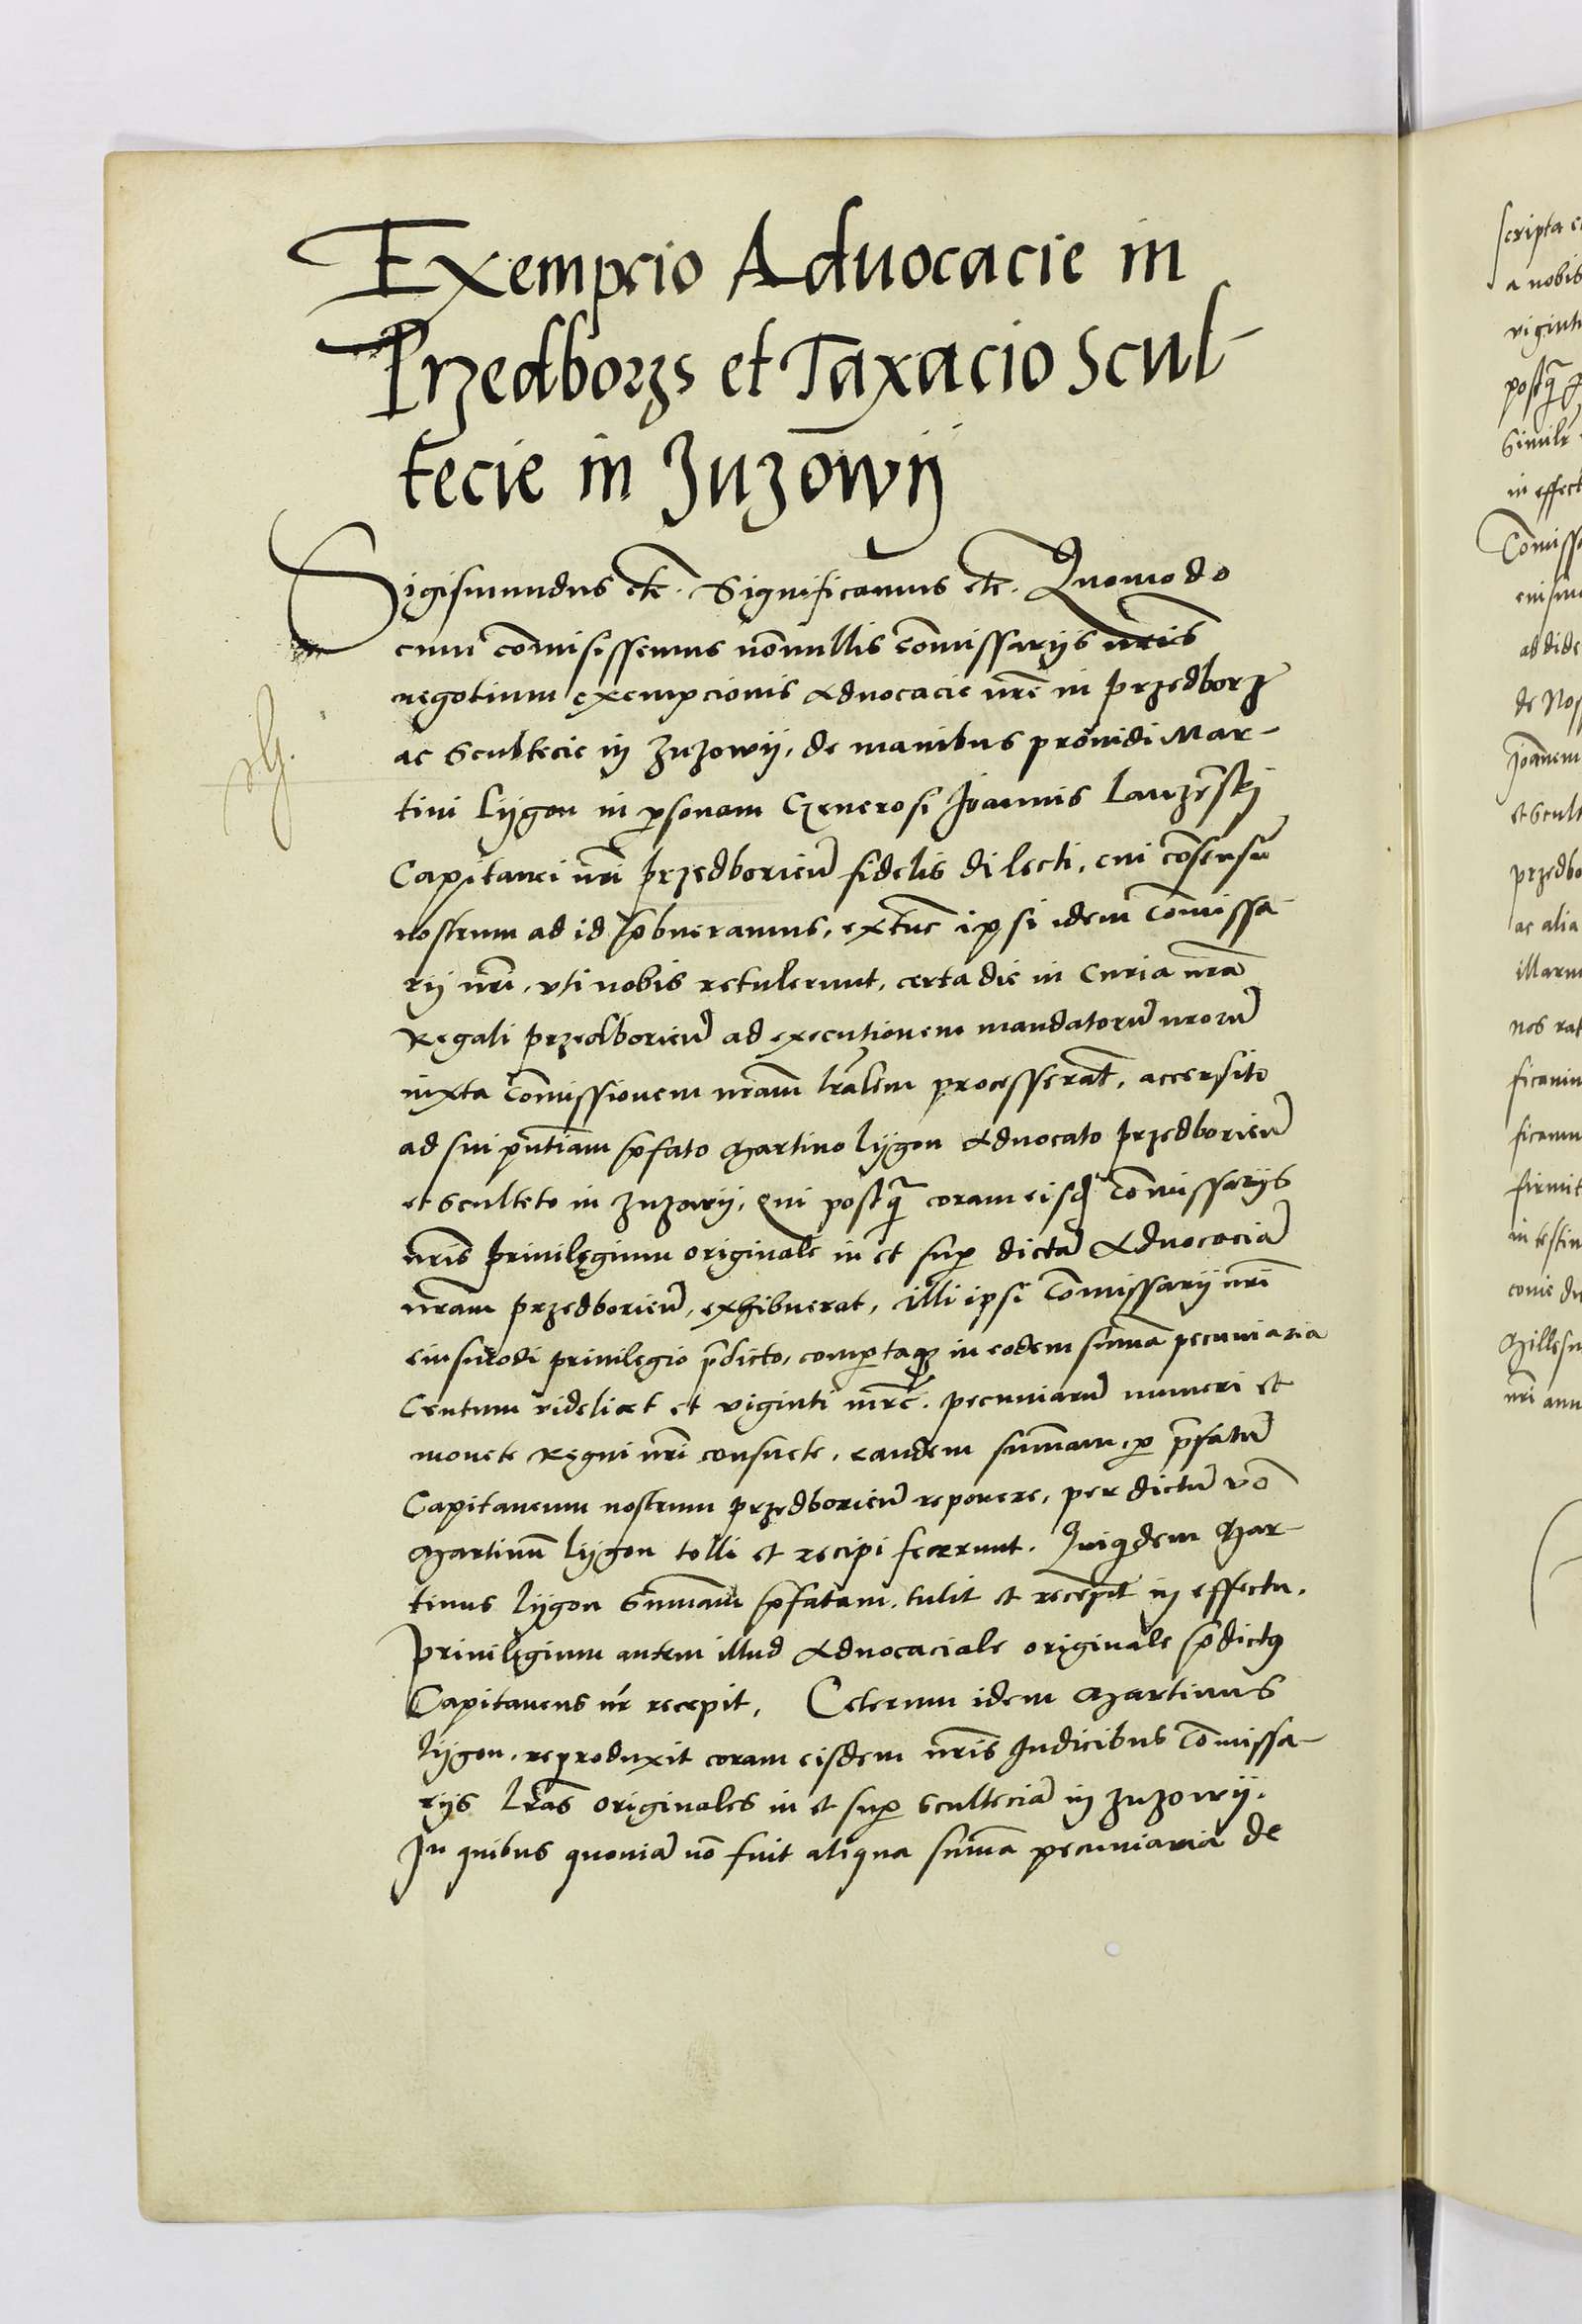 Exempcio Aduocacie in
Przedborzs et Taxacio Scul-
tecie in Zuzowÿ
Sigismundus etc. Significamus etc. Quomodo
cum com̄isissemus nōnullis cōmissarÿs nr̄is
negotium exempcionis Aduocacie nr̄e in przedborz
ac Scultecie in Zuzowÿ, de manibus prouidi Mar-
tini Lÿgon in p̱sonam Generosi Joannis Lanze̅skj
Capitanei nr̄i przedborieñ fidelis dilecti, cui cōsensū
nostrum ad id p̄bueramus, extūc ipsi idem Com̄issa
rÿ nr̄i, vti nobis retulerunt, certa die in Curia nr̄a
Regali przedborieñ ad executionem mandatorū nr̄orū
iuxta Com̄issionem nr̄am lr̄alem processerāt, accersito
ad sui pn̄tiam p̄fato Martino Lÿgon Aduocato przedborieñ
et Sculteto in Zuzowÿ, Qui postq̄ coram eisd̄ Com̄issarÿs
nr̄is priuilegium originale in et sup̱ dictā Aduocaciā
nr̄am przedborieñ, exhibuerat, illi ipsi Com̄issarÿ nr̄i
eiusmodi priuilegio p̄dicto, comp̱taq̨ in eodem sum̄a pecuniaria
Centum videlicet et viginti mr̄c. pecuniarū numeri et
monete Regni nr̄i consuete, eandem sum̄am, p̱ p̄fatū
Capitaneum nostrum przedborieñ reponere, per dictū vō
Martinū Lÿgon tolli et recipi fecerunt. Quiq̄dem Mar-
tinus Lÿgon Sum̄am p̄fatam, tulit et recepit in effectu.
Priuilegium autem illud Aduocaciale originale p̄dictus
Capitaneus nr̄ recepit, Ceterum idem Martinus
Lÿgon, reproduxit coram eisdem nr̄is Iudicibus Com̄issa-
rÿs lr̄as originales in et sup̱ scultecia̅ in Zuzowÿ.
In quibus quoniā nō fuit aliqua sum̄a pecuniaria de
scripta
a nobis
postq̄
in effect
ab
de
Joannem
et Scult
przedbo
ac alia
nos rat
firmit
nr̄i ann